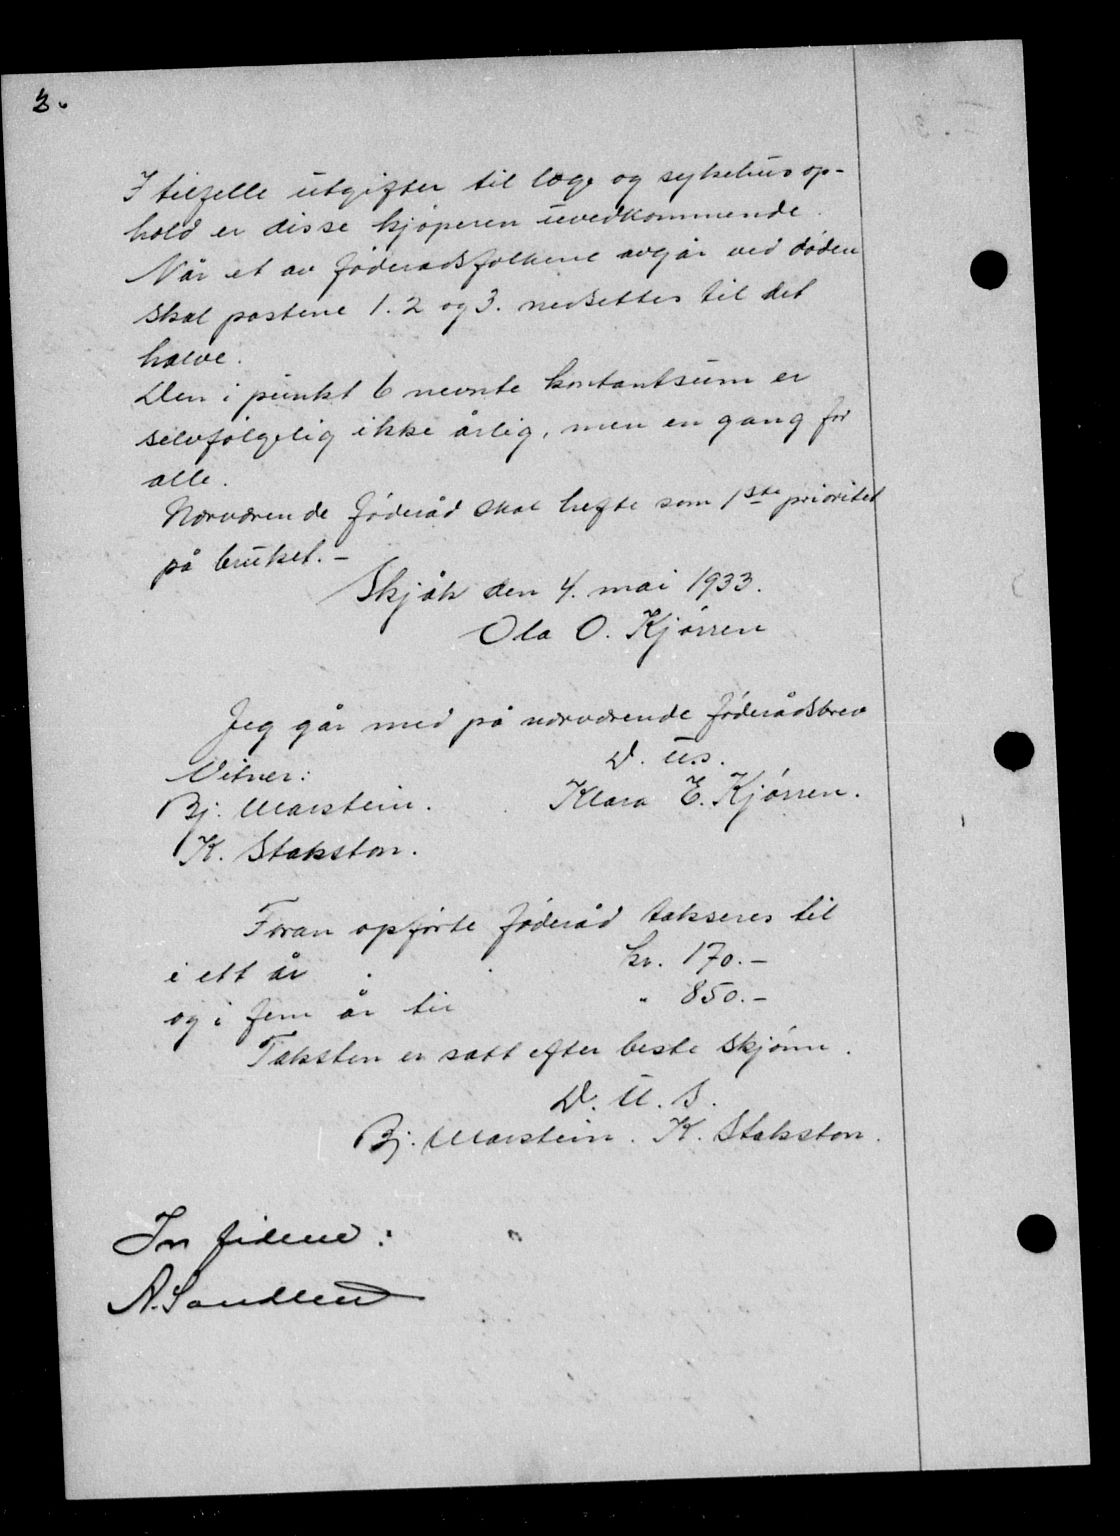 3.
I tilfelle utgifter til læge og sykehusop-
hold er disse kjøperen uvedkommende.
Når et av føderådsfolkene avgår ved døden
skal postene 1. 2 og 3. nedsettes til det
halve.
Den i punkt 6 nevnte kontantsum er
selvfølgelig ikke årlig, men en gang for
alle.
Nærværende føderåd skal hefte som 1ste prioritet
på bruket.-
Skjåk den 4. mai 1933.
Ola O. Kjørren
Jeg går med på nærværende føderådsbrev
D. U.s.
Vitner:
Klara E. Kjørren.
Bj. Marstein.
K. Stakston.
Foran opførte føderåd takseres til
i ett år kr. 170.-
og i fem år til " 850.-
Taksten er satt efter beste skjønn.
D. U. S.
Bj. Marstein. K. Stakston.
In fidem:
A. Sandlund